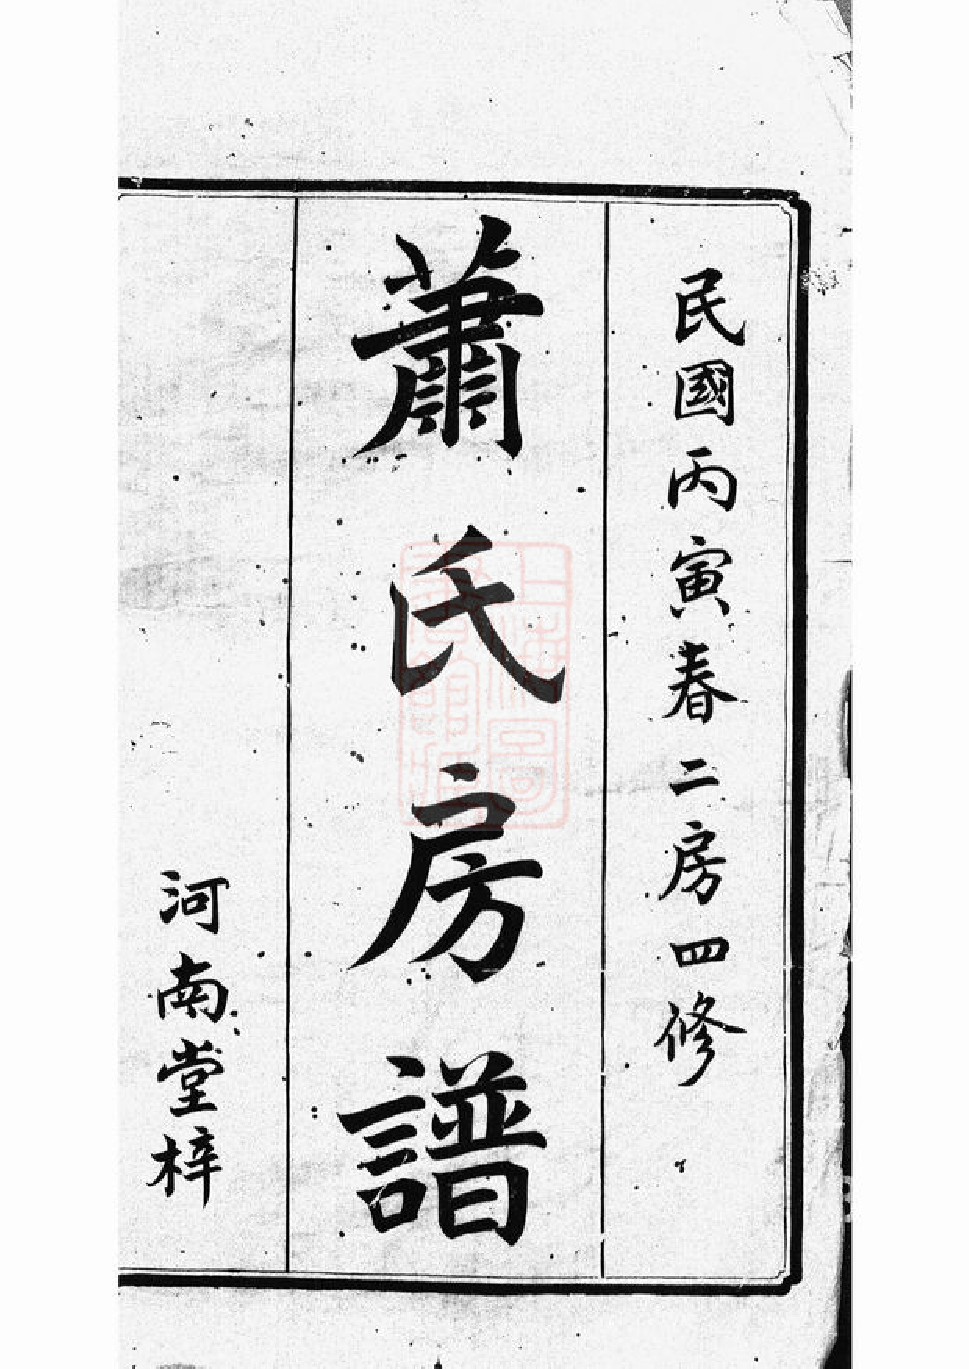 民國丙寅春二房四修
蕭氏房譜
河南堂梓